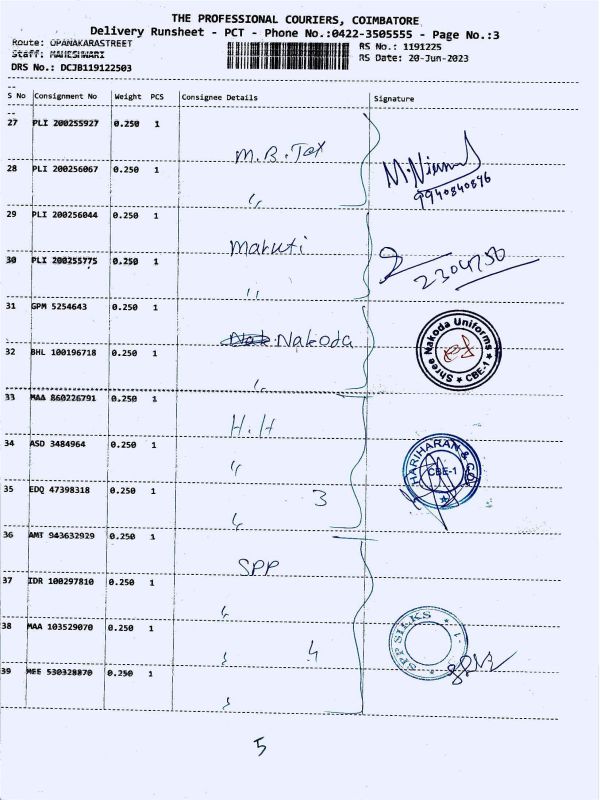 THE PROFESSIONAL COURIERS, COIMBATORE
Delivery Runsheet - PCT - Phone No.:0422-3505555 - Page No.:3
Route: OPANAKARASTREET RS No.: 1191225
Staff: MAHESHWARI RS Date: 20-Jun-2023
DRS No.: DCJB119122503
S No Consignment No Weight PCS Consignee Details Signature
27 PLI 200255927 0.250 1
M.R.Tex
28 PLI 200256067 0.250 1
9940840896
29 PLI 200256044 0.250 1
Maruti
30 PLI 200255775 0.250 1
2304750
31 GPM 5254643 0.250 1
Nakoda
Shree Nakoda Uniforms
★ CBE-1 ★
32 BHL 100196718 0.250 1
33 MAA 860226791 0.250 1
H.H
34 ASD 3484964 0.250 1
HARIHARAN &
CBE-1
35 EDQ 47398318 0.250 1
3
36 AMT 943632929 0.250 1
SPP
37 IDR 100297810 0.250 1
SPP SILKS
38 MAA 103529070 0.250 1
4
39 MEE 530328870 0.250 1
5